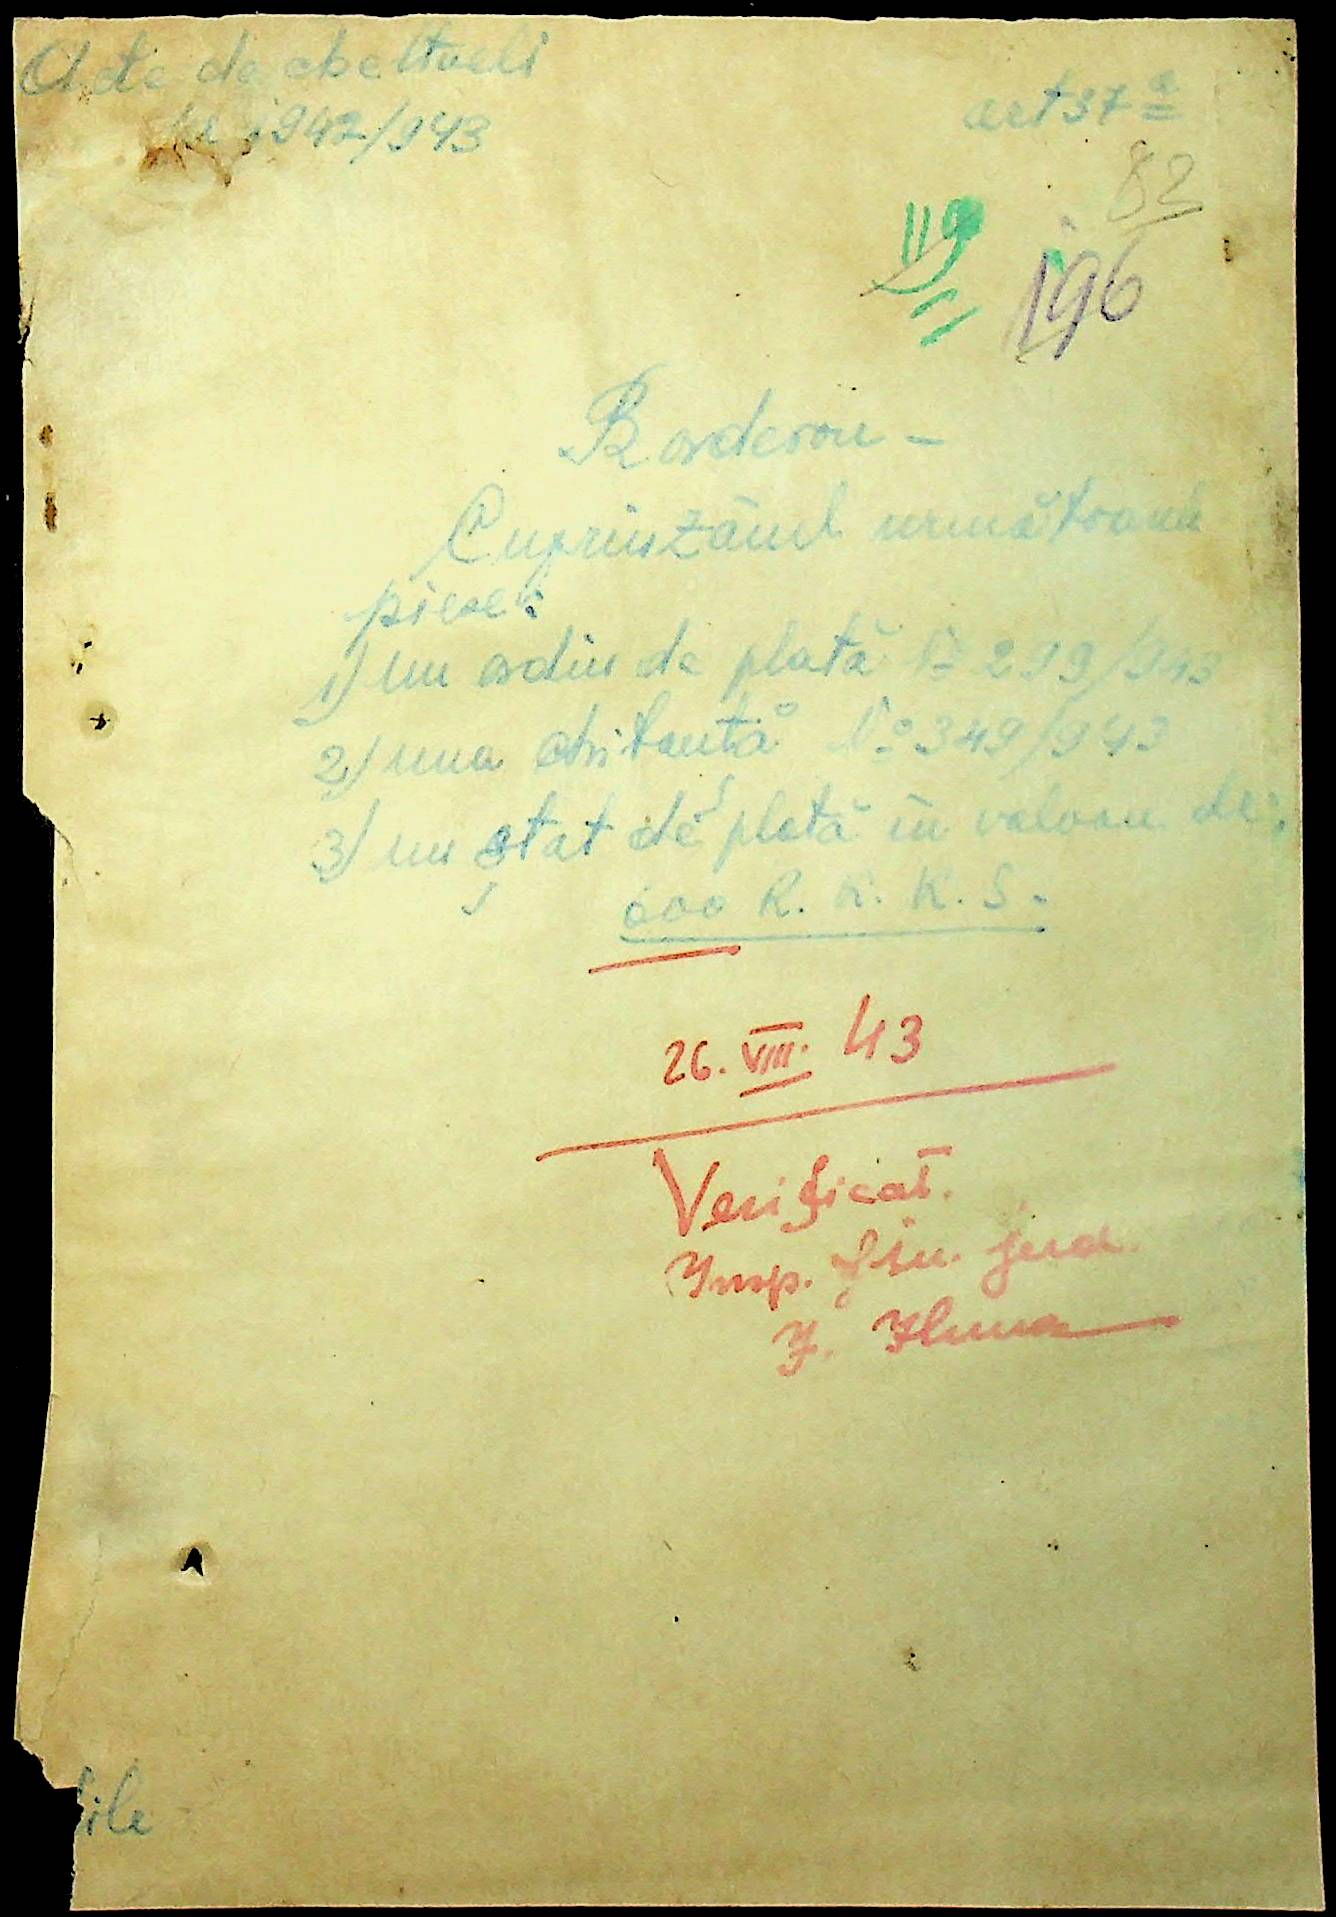 Acte de cheltueli
pe 1942/943
art 37 a
82
119
196
Borderou -
Cuprinzând următoarele
piese:
1) un ordin de plată No 299/943
2) una chitanță No 349/943
3) un stat de plată în valoare de:
600 R. K. K. S.
26. VIII. 43
Verificat.
Insp. fin. jud.